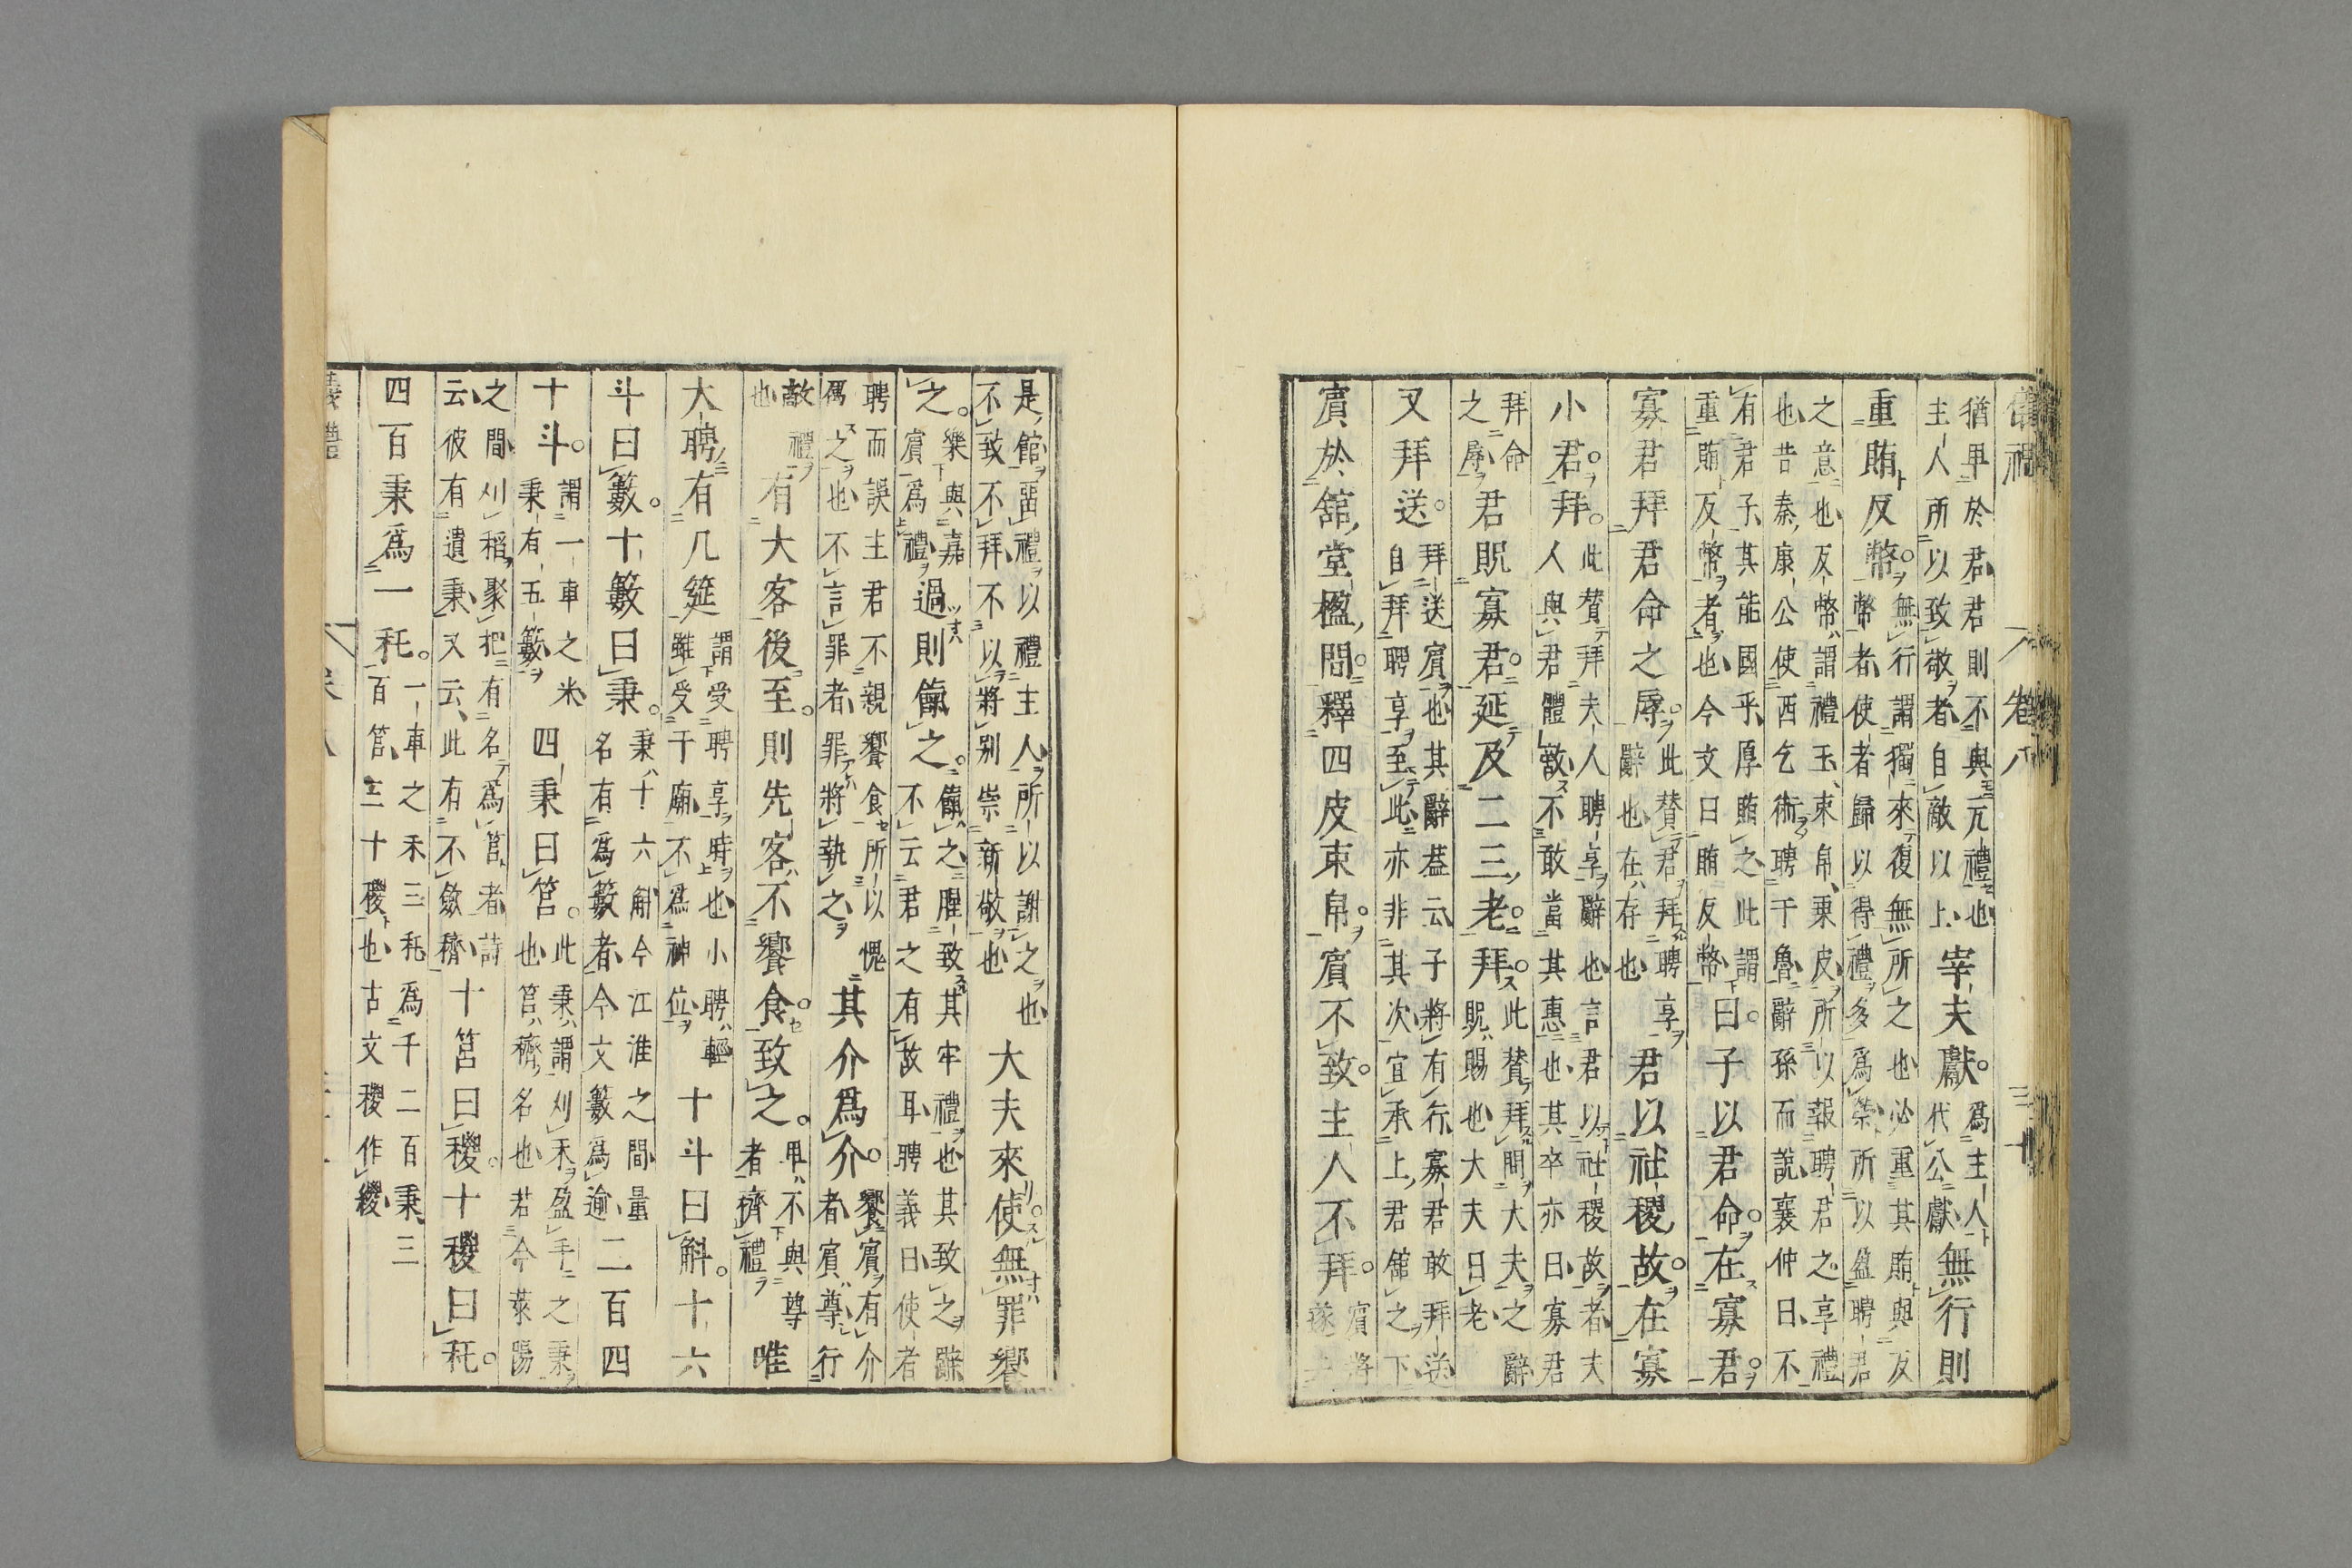 儀禮 卷八 三十
猶卑於君君則不與亢禮也
主人所以致敬者自敵以上
宰夫獻
為主人
代公獻
無行則
重賄反幣
無行謂獨來復無所之也必重其賄與反
幣者使者歸以得禮多為榮所以盈聘君
之意也反幣謂禮玉束帛乘皮所以報聘君之享禮
也昔秦康公使西乞術聘于魯辭孫而說襄仲曰不
有君子其能國乎厚賄之此謂
重賄反幣者也今文曰賄反幣
曰子以君命在寡君
寡君拜君命之辱
此贊君拜聘享
辭也在存也
君以社稷故在寡
小君拜
此贊拜夫人聘享辭也言君以社稷故者夫
人與君體敵不敢當其惠也其卒亦曰寡君
拜命
之辱
君貺寡君延及二三老拜
此贊拜問大夫之辭
貺賜也大夫曰老
又拜送
拜送賓也其辭蓋云子將有行寡君敢拜送
自拜聘享至此亦非其次宜承上君館之下
賓於館堂楹間釋四皮束帛賓不致主人不拜
賓將
遂去
是館畱禮以禮主人所以謝之也
不致不拜不以將別崇新敬也
大夫來使無罪饗
之
樂與嘉
賓為禮
過則餼之
餼之腥致其牢禮也其致之辭
不云君之有故耳聘義曰使者
聘而誤主君不親饗食所以愧
厲之也不言罪者罪將執之
其介為介
饗賓有介
者賓尊行
敵禮
也
有大客後至則先客不饗食致之
卑不與尊
者齊禮
唯
大聘有几筵
謂受聘享時也小聘輕
雖受于廟不為神位
十斗曰斛十六
斗曰籔十籔曰秉
秉十六斛今江淮之間量
名有為籔者今文籔為逾
二百四
十斗
謂一車之米
秉有五籔
四秉曰筥
此秉謂刈禾盈手之秉
也筥穧名也若今萊陽
之間刈稻聚把有名為筥者詩
云彼有遺秉又云此有不斂穧
十筥曰稯十稯曰秅
四百秉為一秅
一車之禾三秅為千二百秉三
百筥三十稯也古文稯作緵